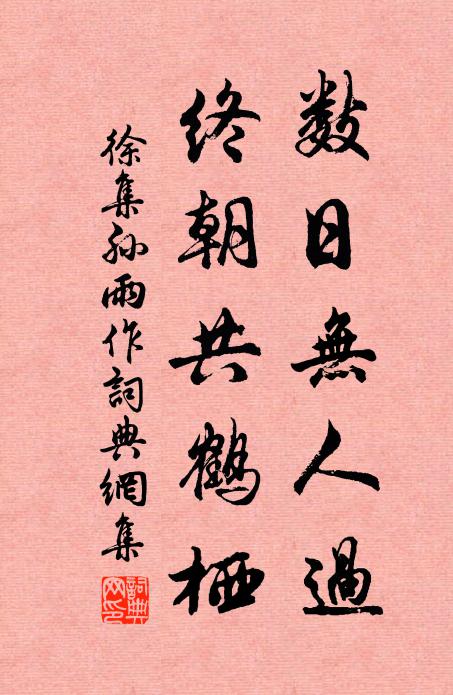 數日無人過
終朝共鶴栖
徐集孫雨作詞典網集
詞典網印